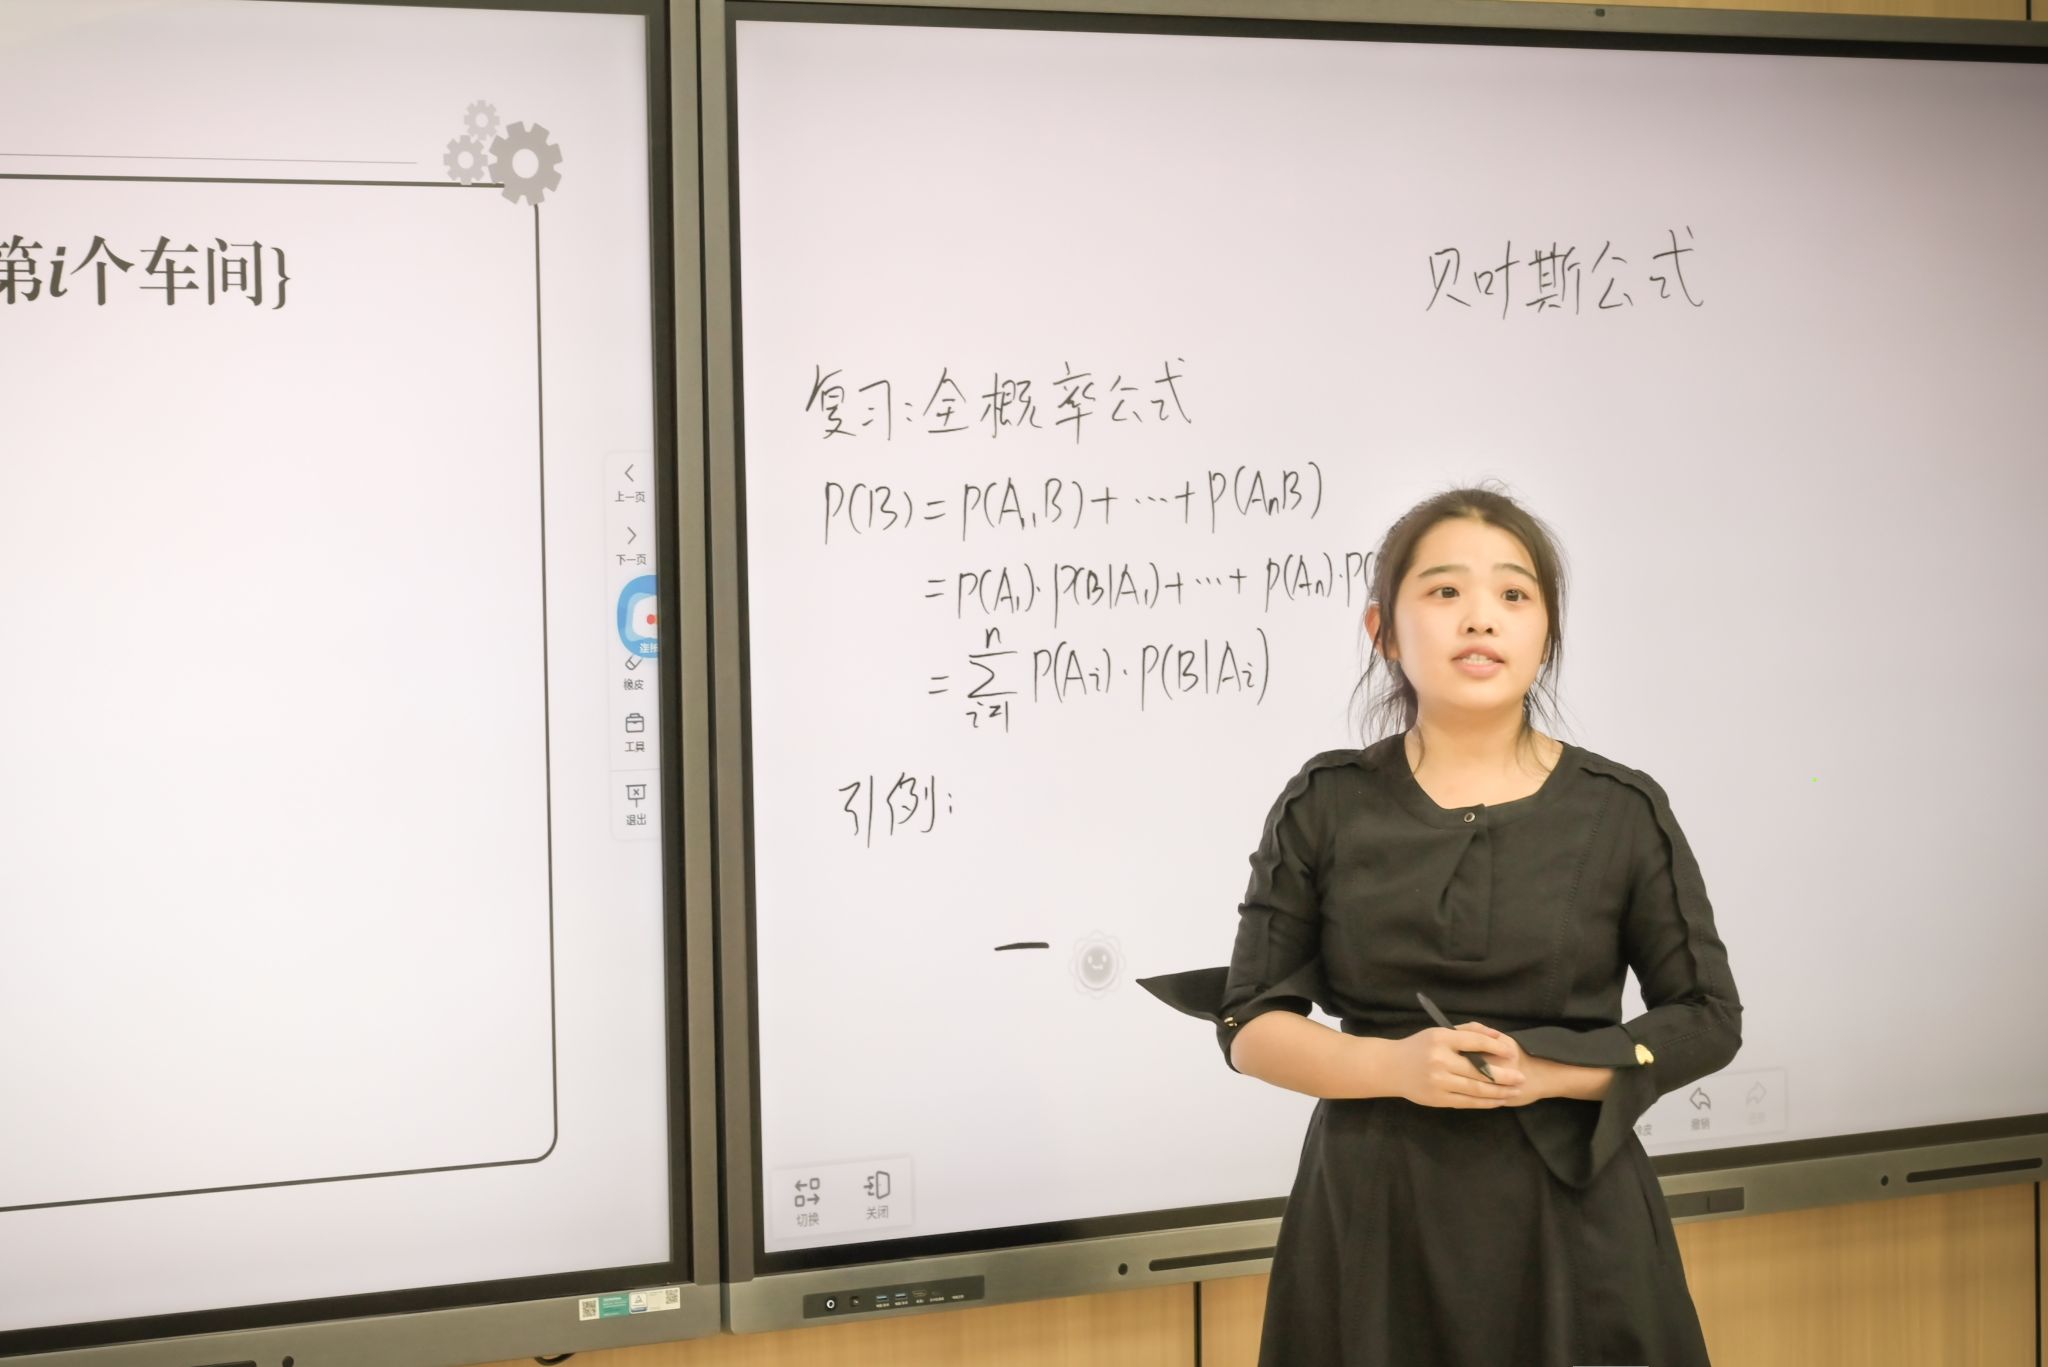 第i个车间}
上一页
下一页
橡皮
工具
退出
贝叶斯公式
复习:全概率公式
P(B) = P(A₁B) + … + P(AₙB)
= P(A₁)·P(B|A₁) + … + P(Aₙ)·P(
= ∑ⁿᵢ₌₁ P(Aᵢ)·P(B|Aᵢ)
引例:
一
切换
关闭
撤销